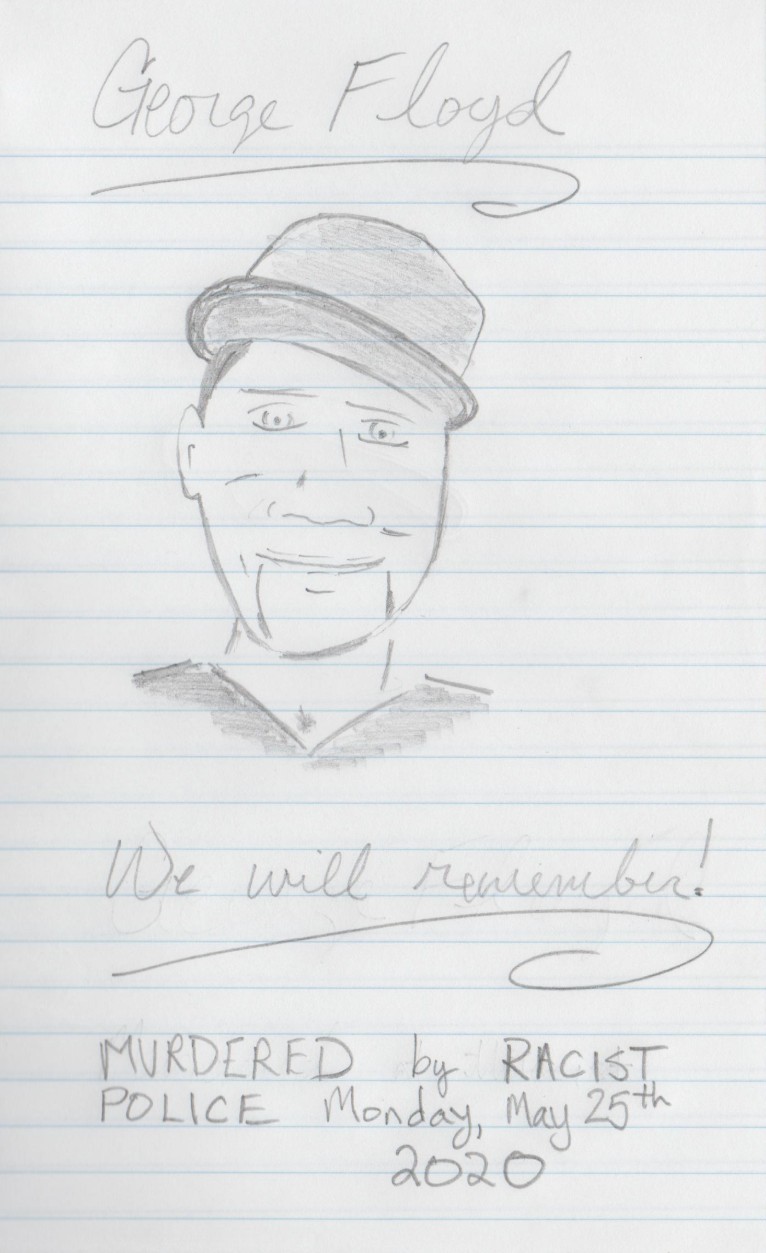 George Floyd
We will remember!
MURDERED by RACIST
POLICE Monday, May 25th
2020